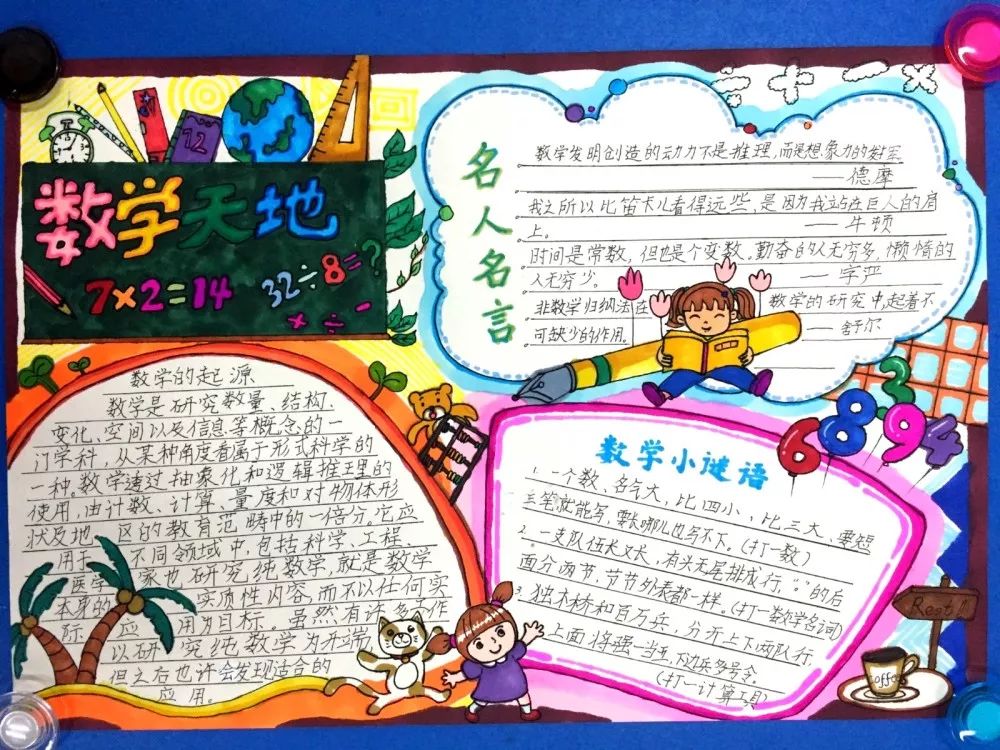 数学天地
7×2=14
32÷8=?
×÷-
12
名人名言
数学发明创造的动力不是推理,而是想象力的发挥
——德摩
我之所以比笛卡儿看得远些,是因为我站在巨人的肩
上。——牛顿
时间是常数,但也是个变数。勤奋的人无穷多,懒惰的
人无穷少。——字严
非数学归纳法在 数学的研究中,起着不
可缺少的作用。——舒尔
数学的起源
数学是研究数量 结构、
变化、空间以及信息等概念的一
门学科 从某种角度看属于形式科学的
一种。数学透过抽象化和逻辑推理的
使用,由计数、计算、量度和对物体形
状及地 区的教育范畴中的一倍分。它应
用于 不同领域中,包括科学、工程、
医学 家也研究纯数学,就是数学
本身的 实质性内容,而不以任何实
际 应 用为目标。虽然有许多工作
以研 究纯数学为开端,
但之后也许会发现适合的
应用。
数学小谜语
1. 一个数、名气大,比四小,比三大、要
三笔就能写,要 哪儿也写不下。(打一数)
2. 一支队伍长又长,有头无尾排成行,“.”的后
面分两节,节节外表都一样。(打一数学名词)
3. 独木桥和百万兵,分开上下两队行.
上面将强一当五,下边兵多
(打一计算工具)
6
8
3
9
4
Coffee